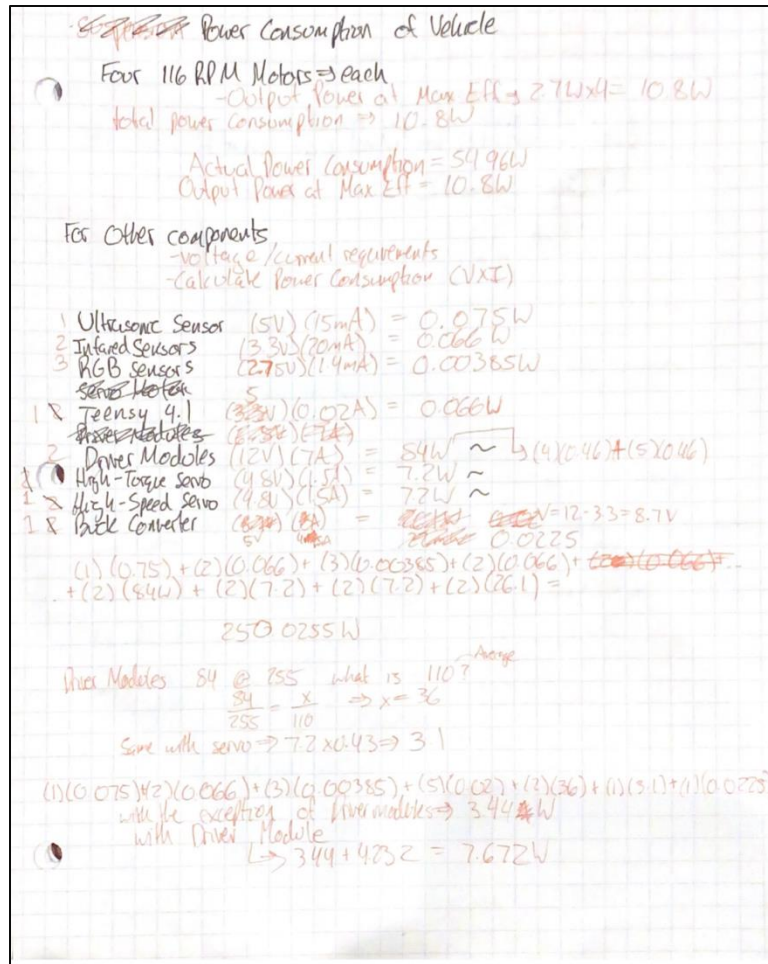 Power Consumption of Vehicle
Four 116 RPM Motors ⇒ each
-Output Power at Max Eff → 2.7W x4 = 10.8W
total power consumption ⇒ 10.8W
Actual Power Consumption = 54.96W
Output Power at Max Eff = 10.8W
For Other components
-voltage/current requirements
-Calculate Power Consumption (VxI)
1 Ultrasonic Sensor (5V) (15mA) = 0.075W
2 Infared Sensors (3.3V)(20mA) = 0.066W
3 RGB Sensors (2.75V)(1.4mA) = 0.00385W
Servo Motor
1 Teensy 4.1 5 (0.02A) = 0.066W
Driver Modules (7A)
2 Driver Modules (12V)(7A) = 84W ~ ↳ (4)(0.46)+(5)(0.46)
1 High-Torque Servo (4.8V)(1.5A) = 7.2W ~
1 High-Speed Servo (4.8V)(1.5A) = 7.2W ~
1 Buck Converter = V=12-3.3=8.7V
5V 0.0225
(1)(0.75)+(2)(0.066)+(3)(0.00385)+(2)(0.066)+
+(2)(84W)+(2)(7.2)+(2)(7.2)+(2)(26.1) =
250.0255W
Driver Modules 84 @ 255 what is 110? Average
84/255 = x/110 ⇒ x=36
Same with servo ⇒ 7.2x0.43 ⇒ 3.1
(1)(0.075)+(2)(0.066)+(3)(0.00385)+(5)(0.02)+(2)(36)+(1)(3.1)+(1)(0.0225)
with the exception of Driver modules ⇒ 3.44W
with Driver Module
↳ 3.44+4.232 = 7.672W